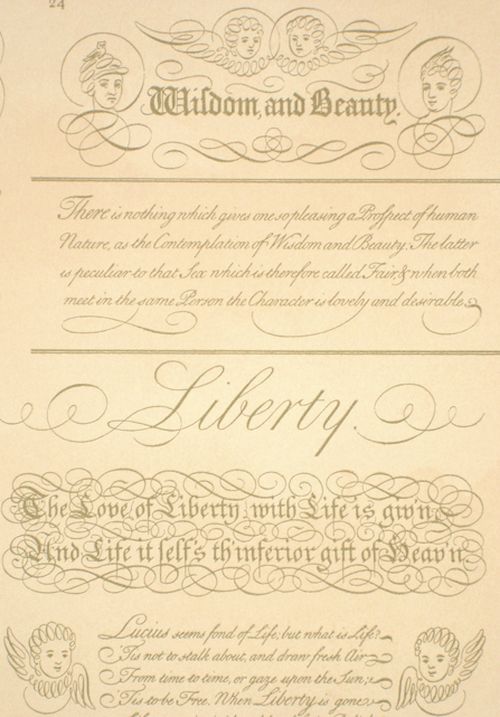 24
Wiſdom, and Beauty.
There is nothing which gives one so pleasing a Proſpect of human
Nature, as the Contemplation of Wisdom and Beauty. The latter
is peculiar to that Sex which is therefore called Fair; & when both
meet in the same Person the Character is lovely and desirable.
Liberty.
The Love of Liberty, with Life is giv'n,
And Life it ſelf's th'inferior gift of Heav'n.
Lucius seems fond of Life; but what is Life?
'Tis not to stalk about, and draw fresh Air
From time to time, or gaze upon the Sun;
'Tis to be Free. When Liberty is gone